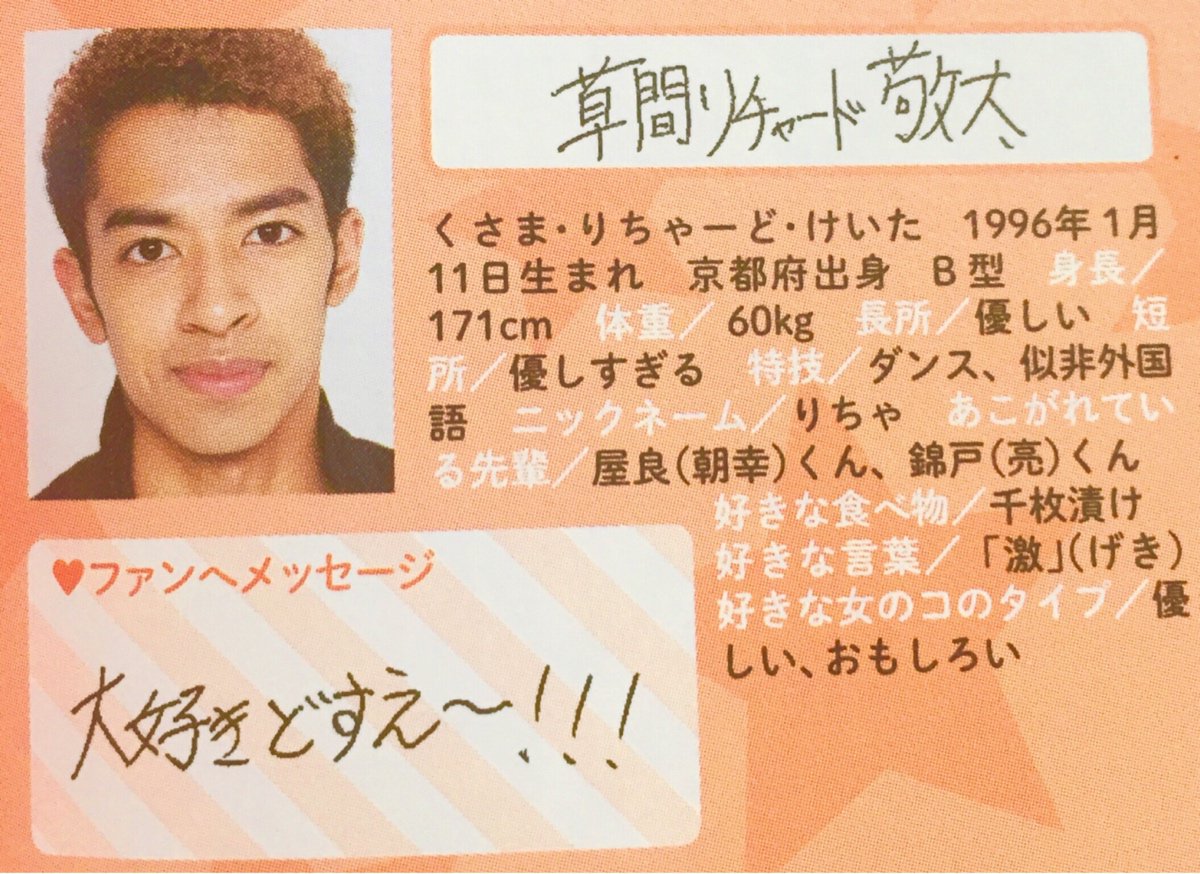 草間リチャード敬太
くさま・りちゃーど・けいた　1996年1月
11日生まれ　京都府出身　B型　身長／
171cm　体重／60kg　長所／優しい　短
所／優しすぎる　特技／ダンス、似非外国
語　ニックネーム／りちゃ　あこがれてい
る先輩／屋良(朝幸)くん、錦戸(亮)くん
好きな食べ物／千枚漬け
好きな言葉／「激」(げき)
好きな女のコのタイプ／優
しい、おもしろい
♥ファンへメッセージ
大好きどすえ〜!!!